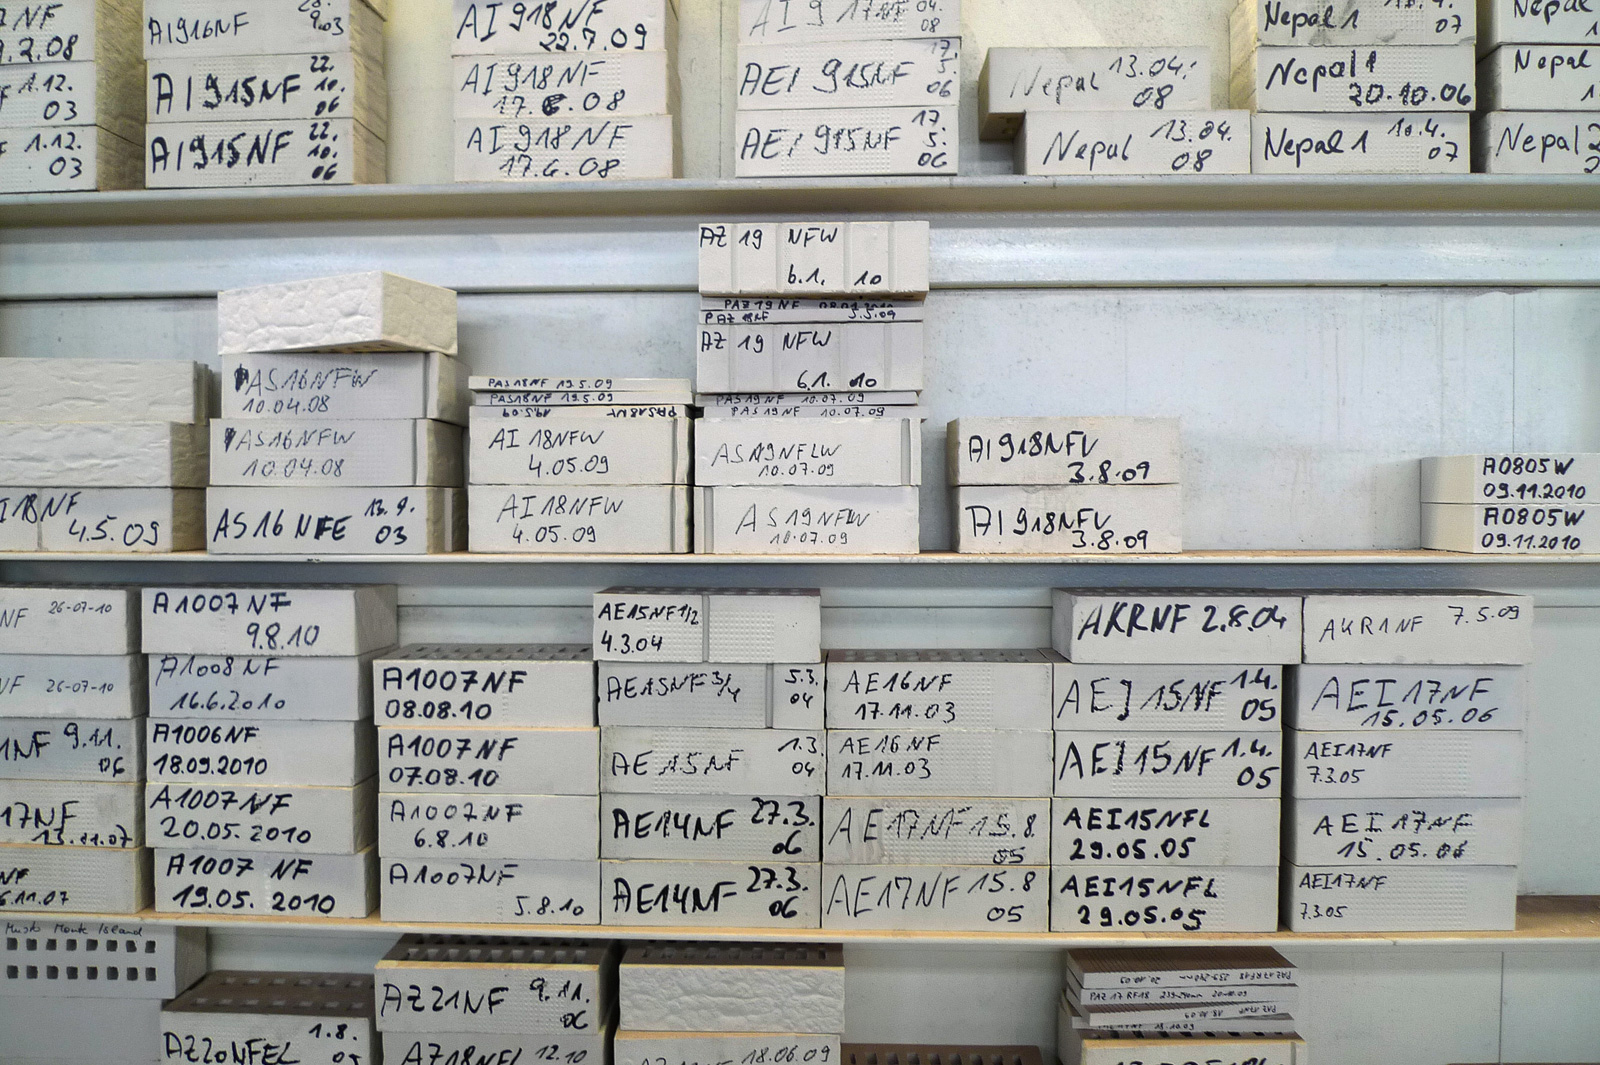 NF
9.2.08
1.12.
03
1.12.
03
A1916NF
9.03
A1915NF 22.
10.
06
A1915NF 22.
10.
06
AI 918NF
22.7.09
AI 918NF
17.6.08
AI 918NF
17.6.08
AI 9 17NF 04.
08
AEI 915NF 17.
5.
06
AEI 915NF 17
5.
06
Nepal 13.04.
08
Nepal 13.04.
08
Nepal 1
07
Nepal 1
20.10.06
Nepal 1 10.4.
07
Nepal
Nepal
Nepal 2
AZ 19 NFW
6.1. 10
PAZ 19NF
PAZ 19NF 5.5.09
AZ 19 NFW
6.1. 10
PAS19NF 10.07.09
PAS 19NF 10.07.09
AS19NFLW
10.07.09
AS19NFLW
10.07.09
AS16NFW
10.04.08
AS16NFW
10.04.08
AS16 NFE 13.9.
03
I18NF
4.5.09
PAS18NF 19.5.09
PAS18NF 19.5.09
PAS18NF 19.5.09
AI 18NFW
4.05.09
AI 18NFW
4.05.09
AI 918NFV
3.8.09
AI 918NFV
3.8.09
A0805W
09.11.2010
A0805W
09.11.2010
NF 26-07-10
NF 26-07-10
1NF 9.11.
06
17NF
13.11.07
NF
6.11.07
A1007NF
9.8.10
A1008NF
16.6.2010
A1006NF
18.09.2010
A1007NF
20.05.2010
A1007 NF
19.05.2010
A1007NF
08.08.10
A1007NF
07.08.10
A1007NF
6.8.10
A1007NF
5.8.10
AE15NF1/2
4.3.04
AE15NF 3/4 5.3.
04
AE 15NF 1.3.
04
AE14NF 27.3.
06
AE14NF 27.3.
06
AE16NF
17.11.03
AE16NF
17.11.03
AE17NF 15.8.
05
AE17NF 15.8
05
AKRNF 2.8.04
AEI 15NF 1.4.
05
AEI 15NF 1.4.
05
AEI15NFL
29.05.05
AEI15NFL
29.05.05
AKR1NF 7.5.09
AEI 17NF
15.05.06
AEI17NF
7.3.05
AEI 17NF
15.05.06
AEI17NF
7.3.05
Island
AZ20NFEL 1.8.
05
AZ21NF 9.11.
06
AZ18NFL 12.10
18.06.09
PAZ17RF18 239-240mm 20.10.09
PAZ 17 RF18 239-240mm 20.10.09
PAZ17NF 18.10.09